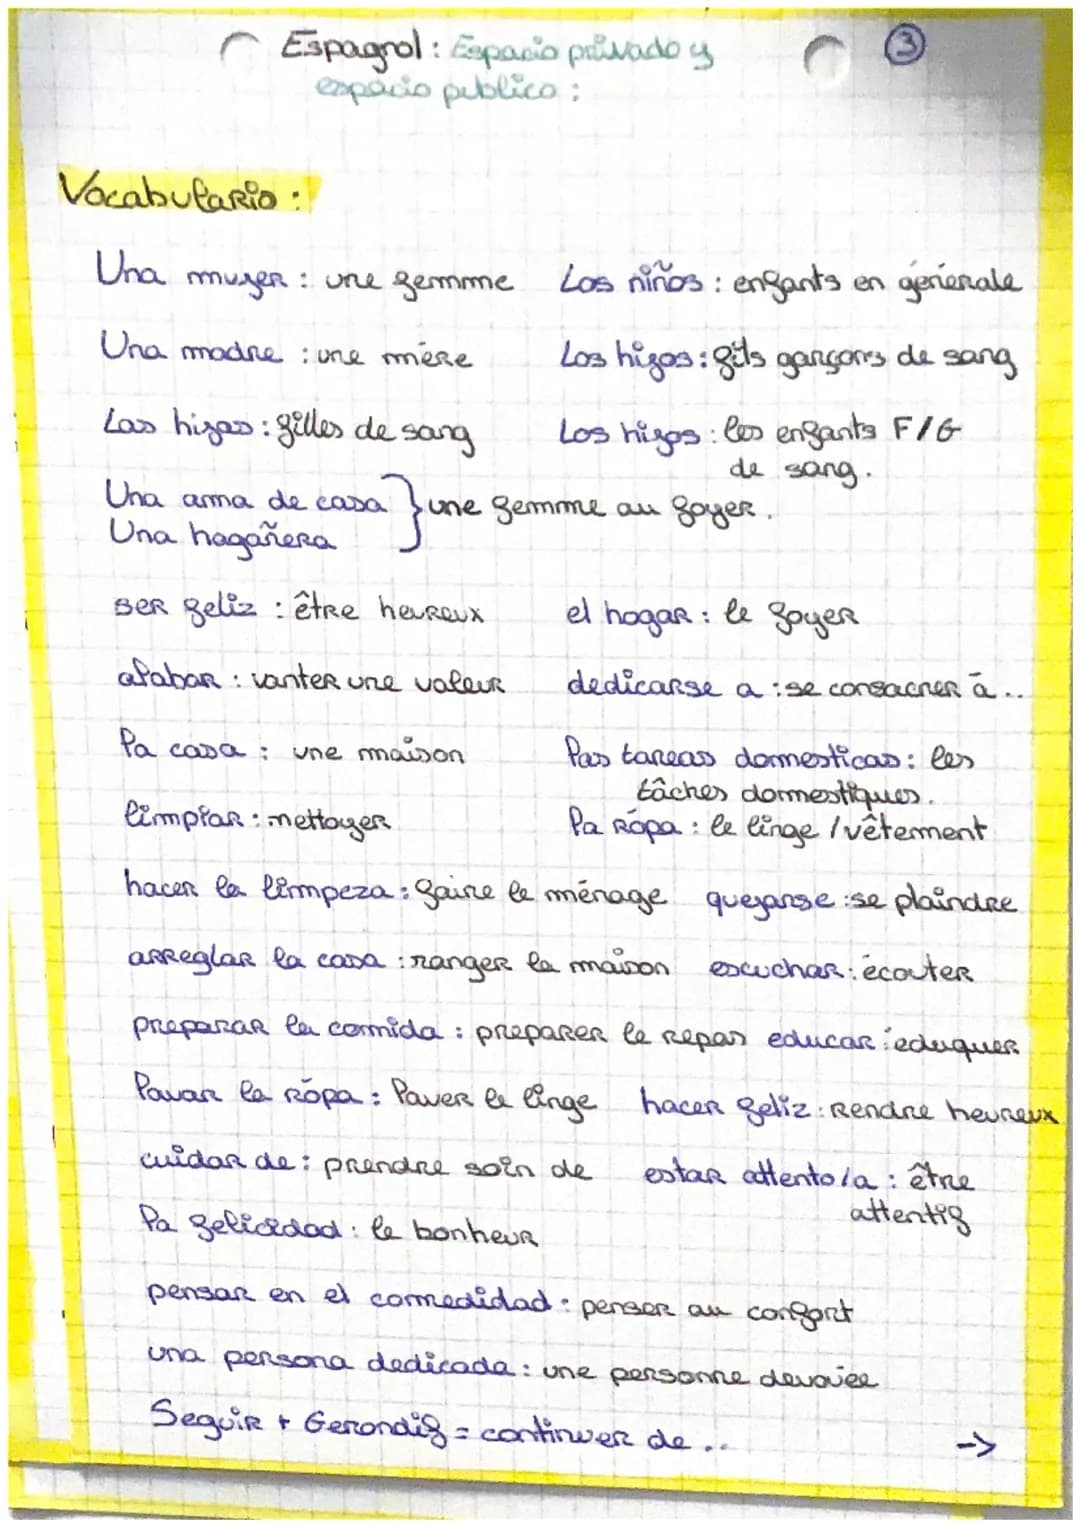 Espagnol : Espacio privado y
espacio publico :
3
Vocabulario :
Una mujer : une femme
Los niños : enfants en génerale
Una madre : une mère
Los hijos : fils garçons de sang
Las hijas : filles de sang
Los hijos : les enfants F/G
de sang.
Una ama de casa } une femme au foyer.
Una hagañera
ser feliz : être heureux
el hogar : le foyer
alabar : vanter une valeur
dedicarse a : se consacrer à ..
la casa : une maison
las tareas domesticas : les
tâches domestiques.
limpiar : nettoyer
la rópa : le linge / vêtement
hacer la limpeza : faire le ménage
quejarse : se plaindre
arreglar la casa : ranger la maison
escuchar : écouter
preparar la comida : preparer le repas
educar : eduquer
lavar la rópa : laver le linge
hacer feliz : Rendre heureux
cuidar de : prendre soin de
estar attento/a : être
attentif
la felicidad : le bonheur
pensar en el comedidad : penser au confort
una persona dedicada : une personne devouée
Seguir + Gerondif = continuer de ..
->